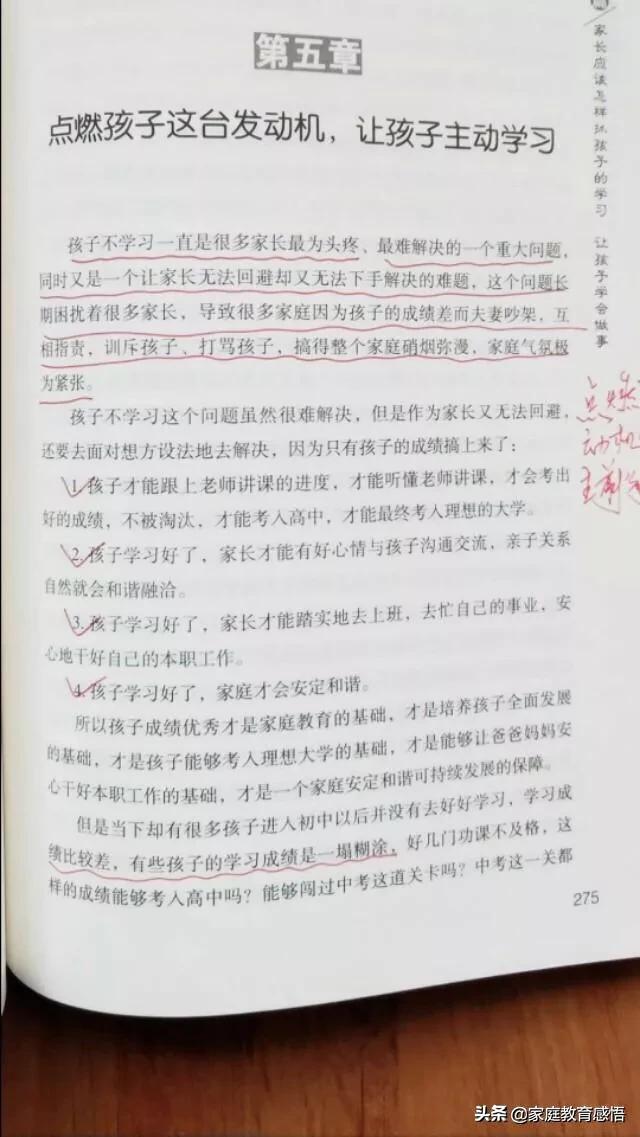 第五章
点燃孩子这台发动机，让孩子主动学习
孩子不学习一直是很多家长最为头疼、最难解决的一个重大问题，
同时又是一个让家长无法回避却又无法下手解决的难题，这个问题长
期困扰着很多家长，导致很多家庭因为孩子的成绩差而夫妻吵架，互
相指责，训斥孩子、打骂孩子，搞得整个家庭硝烟弥漫，家庭气氛极
为紧张。
孩子不学习这个问题虽然很难解决，但是作为家长又无法回避，
还要去面对想方设法地去解决，因为只有孩子的成绩搞上来了：
1.孩子才能跟上老师讲课的进度，才能听懂老师讲课，才会考出
好的成绩，不被淘汰，才能考入高中，才能最终考入理想的大学。
2.孩子学习好了，家长才能有好心情与孩子沟通交流，亲子关系
自然就会和谐融洽。
3.孩子学习好了，家长才能踏实地去上班，去忙自己的事业，安
心地干好自己的本职工作。
4.孩子学习好了，家庭才会安定和谐。
所以孩子成绩优秀才是家庭教育的基础，才是培养孩子全面发展
的基础，才是孩子能够考入理想大学的基础，才是能够让爸爸妈妈安
心干好本职工作的基础，才是一个家庭安定和谐可持续发展的保障。
但是当下却有很多孩子进入初中以后并没有去好好学习，学习成
绩比较差，有些孩子的学习成绩是一塌糊涂，好几门功课不及格，这
样的成绩能够考入高中吗？能够闯过中考这道关卡吗？中考这一关都
275
家长应该怎样抓孩子的学习 让孩子学会做事
点燃
动机
主
头条 @家庭教育感悟